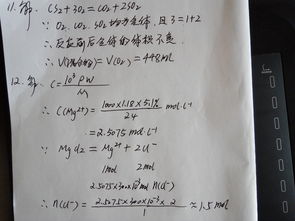 11. 解: CS2 + 3O2 = CO2 + 2SO2
∵ O2, CO2, SO2 均为气体, 且 3 = 1+2
∴ 反应前后气体的体积不变
∴ V = V(O2) = 448ml
12. 解: C = 10³ρW / M
∴ C(Mg2+) = 1000×1.18×5.1% / 24 mol·L-1
= 2.5075 mol·L-1
∵ MgCl2 = Mg2+ + 2Cl-
1mol 2mol
2.5075×300×10-3mol n(Cl-)
∴ n(Cl-) = 2.5075×300×10-3×2 / 1 ≈ 1.5mol